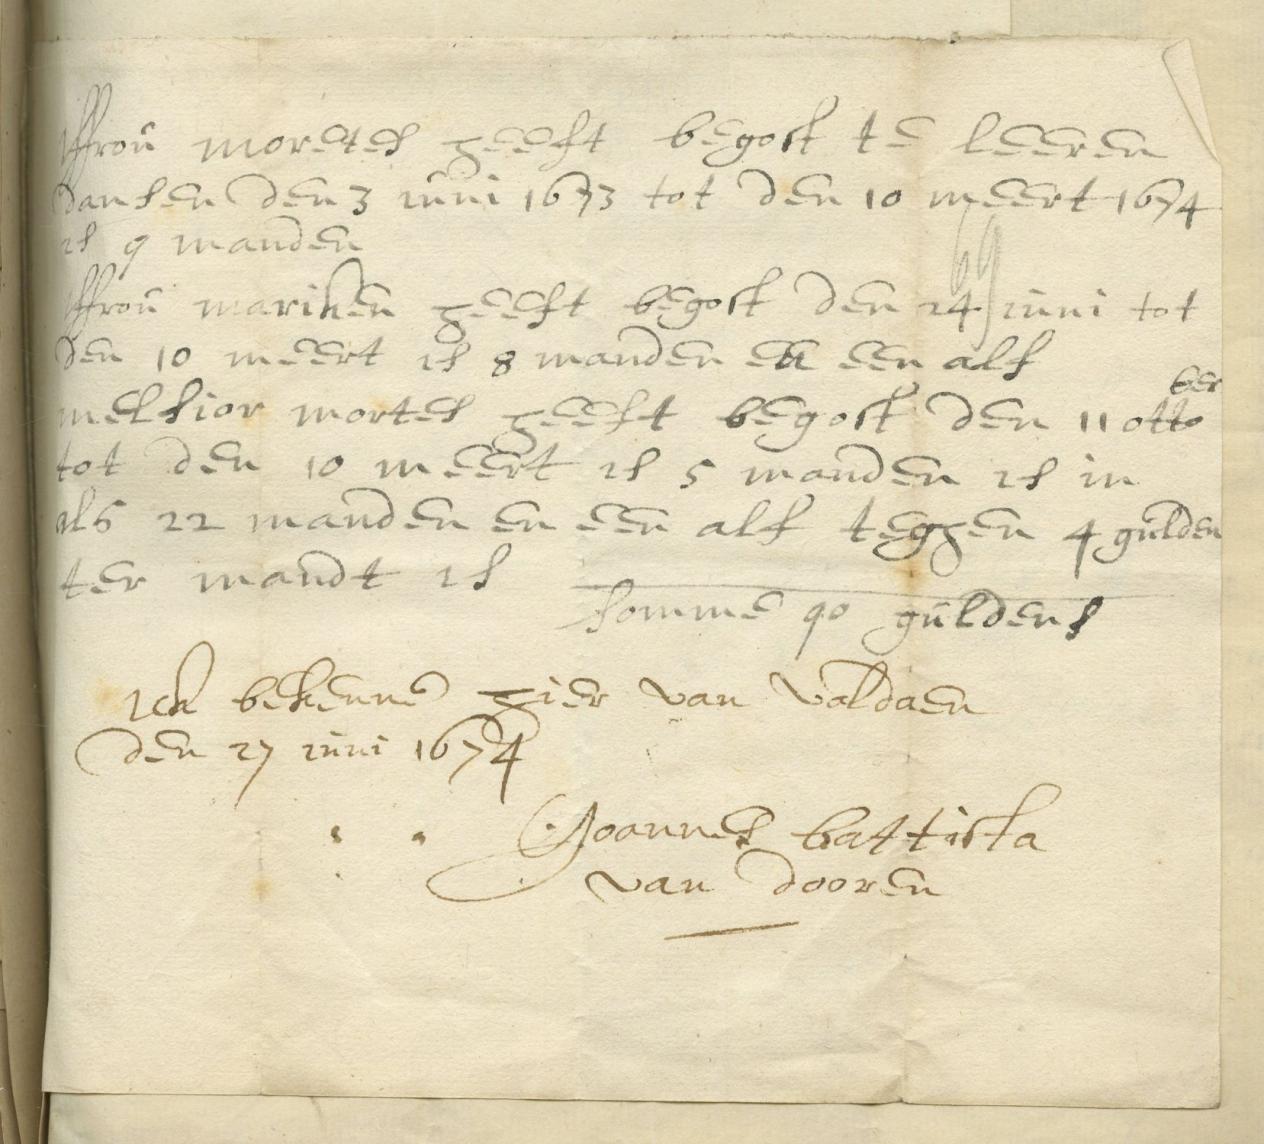 Jffrou moretes heeft begost te leeren
dansen den 3 iuni 1673 tot den 10 meert 1674
is 9 manden
Jffrou mariken heeft begost den 24 iuni tot
den 10 meert is 8 manden en een alf
melsior mortes heeft begost den 11 otto ber
tot den 10 meert is 5 manden is in
als 22 manden en een alf teghen 4 gulden
ter mandt is
somme 90 guldens
ick bekenne hier van valdaen
den 27 iuni 1674
Joannes battista
van dooren